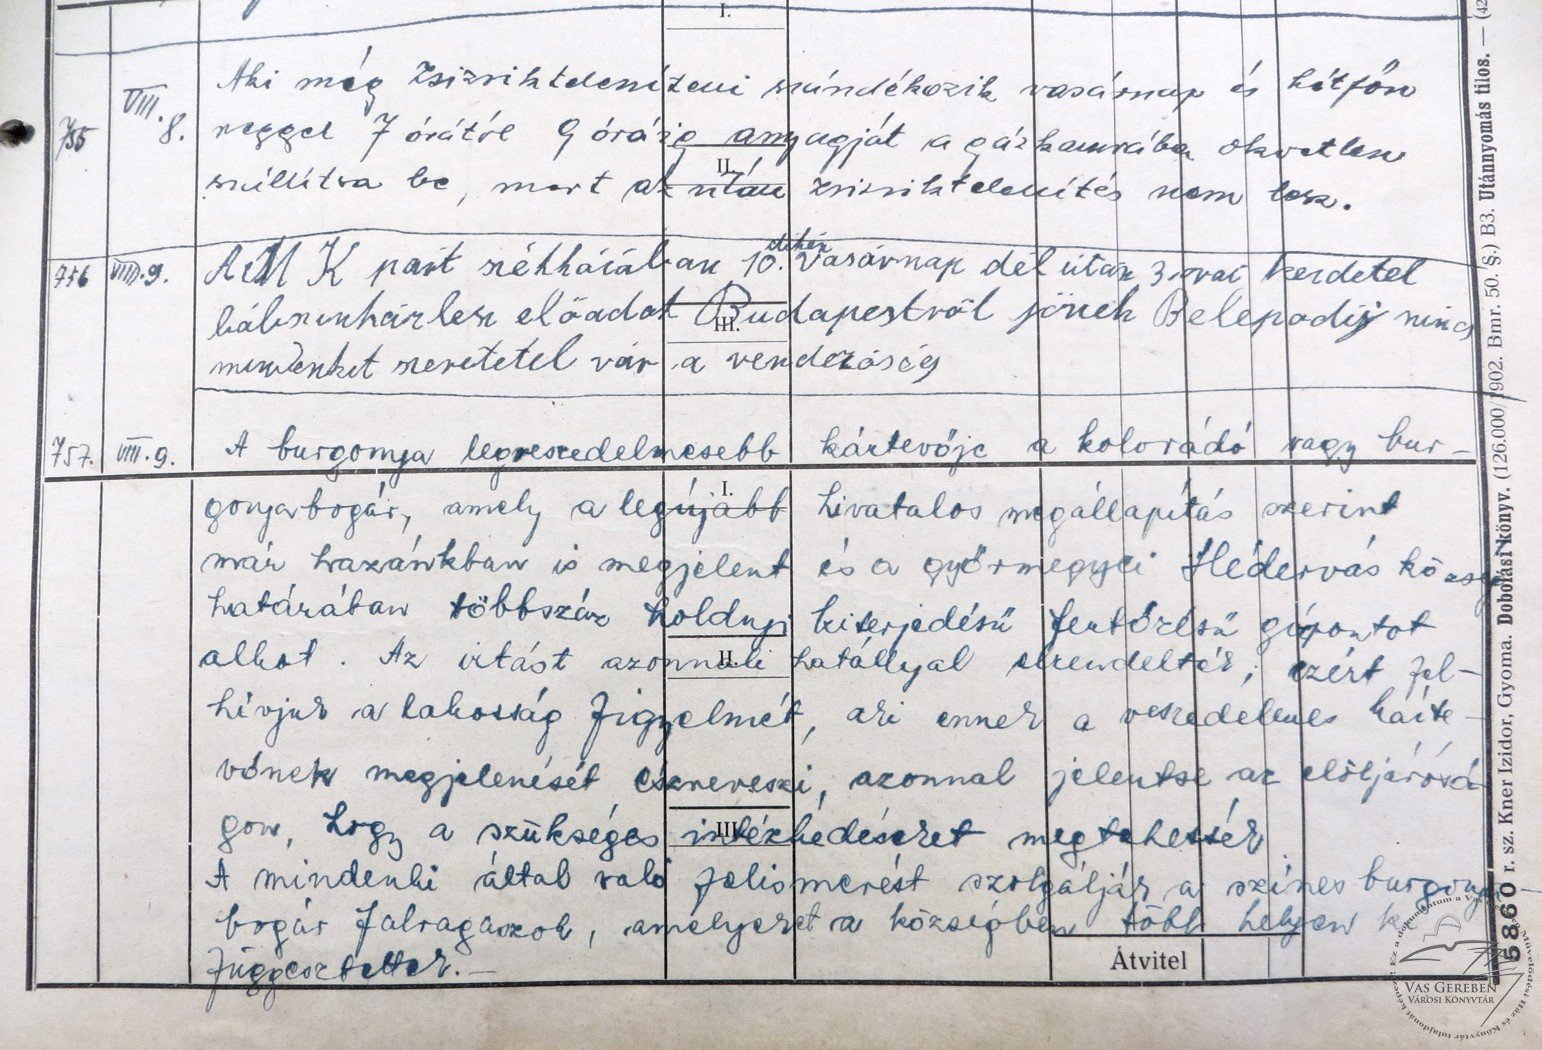 I.
755 VIII. 8. Aki még zsizsikteleníteni szándékozik vasárnap és hétfőn
reggel 7 órától 9 óráig anyagját a gázkamrába okvetlen
szállítsa be, mert az után zsizsiktelenítés nem lesz.
II.
756 VIII. 9. A M K párt székházában 10. vasárnap dél után 3 orai kezdetel
bábszinházlesz előadot Budapestről jönek Belepodij nincs
mindenkit szeretetel vár a vendezöség
III.
757. VIII. 9. A burgonya legveszedelmesebb kártevője a kolorádó vagy bur-
I.
gonyabogár, amely a legújabb hivatalos megállapítás szerint
már hazánkban is megjelent és a győrmegyei Hédervás község
határában többszáz holdnyi kiterjedésű fertőzésű gópontot
alkot. Az irtást azonnali hatállyal elrendelték, ezért fel-
II.
hívjuk a lakosság figyelmét, aki ennek a veszedelmes kárte-
vőnek megjelenését észreveszi, azonnal jelentse az elöljárósá-
gon, hogy a szükséges intézkedéseket megtehessék
III.
A mindenki által való felismerést szolgálják a színes burgonya-
bogár falragaszok, amelyeket a községben több helyen ki
függesztettek. —
Átvitel
5860 r. sz. Kner Izidor, Gyoma. Dobolási könyv. (126.000/1902. Bmr. 50. §.) B3. Utánnyomás tilos. — (42
VAS GEREBEN
VÁROSI KÖNYVTÁR